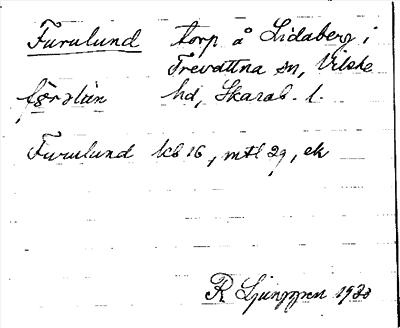 Furulund torp å Lidaberg i
Trevattna sn, Vilske
hd, Skarab. l.
Furulund kb 16, mtl 29, ek
R Ljunggren 1930